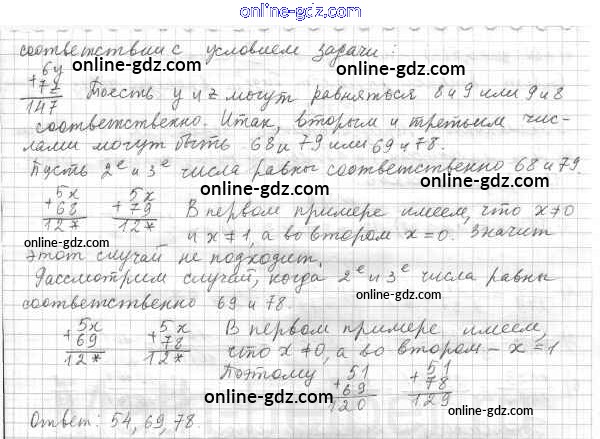 online-gdz.com
соответствии с условием задачи:
6y
+7z
147
online-gdz.com
То есть y и z могут равняться 8 и 9 или 9 и 8
соответственно. Итак, вторым и третьим чис-
online-gdz.com
лами могут быть 68 и 79 или 69 и 78.
online-gdz.com
Пусть 2е и 3е числа равны соответственно 68 и 79.
online-gdz.com
5x
+68
12*
5x
+79
12*
В первом примере имеем, что x≠0
online-gdz.com
и x≠1, а во втором x=0. Значит
этот случай не подходит.
online-gdz.com
Рассмотрим случай, когда 2е и 3е числа равны
соответственно 69 и 78.
online-gdz.com
5x
+69
12*
5x
+78
12*
В первом примере имеем,
online-gdz.com
что x≠0, а во втором – x=1
Поэтому
51
+69
120
51
+78
129
online-gdz.com
Ответ: 54, 69, 78.
online-gdz.com